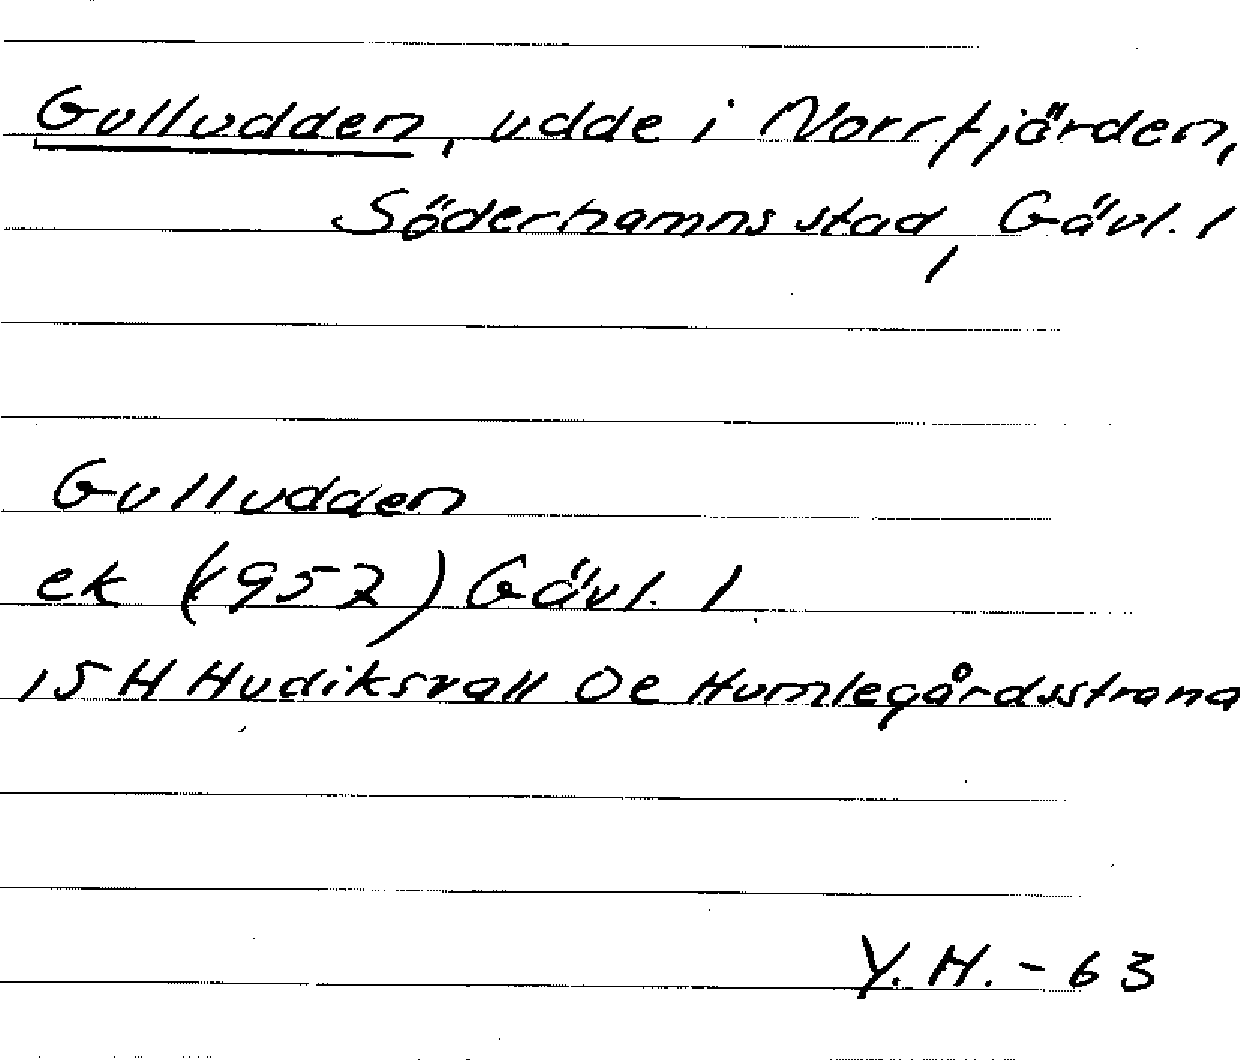 Gulludden, udde i Norrfjärden,
Söderhamns stad, Gävl. l
Gulludden
ek (1952) Gävl. l
15 H Hudiksvall 0e Humlegårdsstrand
Y.H. - 63